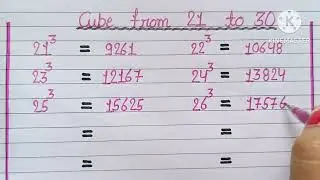 Cube from 21 to 30
21³ = 9261 22³ = 10648
23³ = 12167 24³ = 13824
25³ = 15625 26³ = 17576
= =
= =